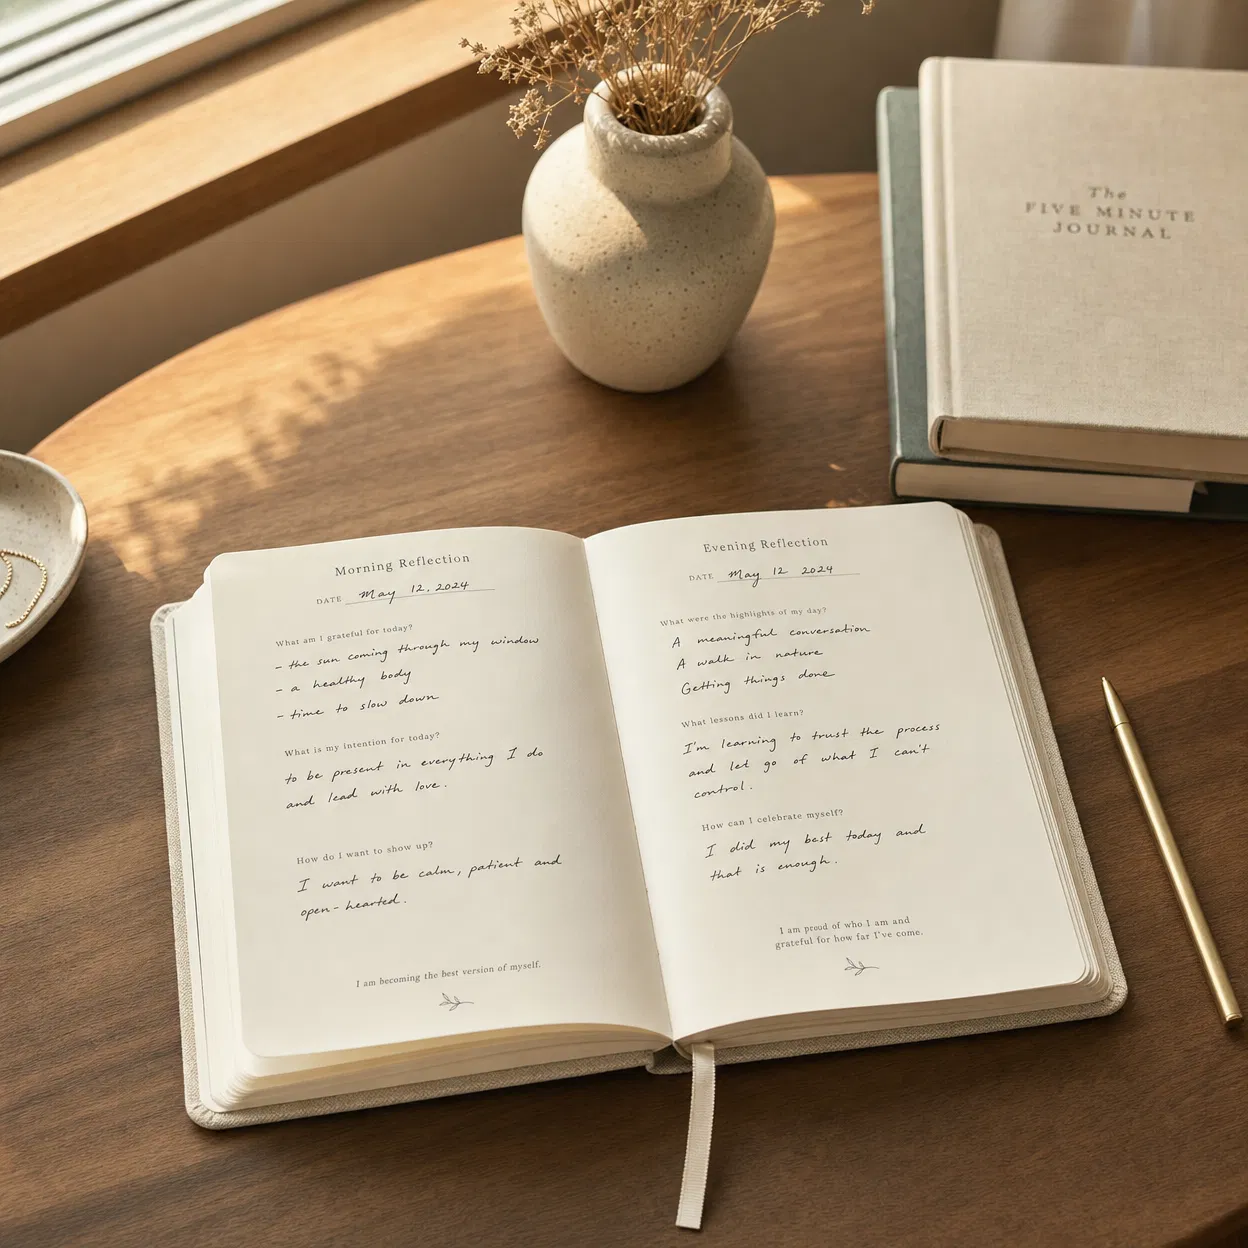 The
FIVE MINUTE
JOURNAL
Morning Reflection
DATE May 12, 2024
What am I grateful for today?
- the sun coming through my window
- a healthy body
- time to slow down
What is my intention for today?
to be present in everything I do
and lead with love.
How do I want to show up?
I want to be calm, patient and
open-hearted.
I am becoming the best version of myself.
Evening Reflection
DATE May 12 2024
What were the highlights of my day?
A meaningful conversation
A walk in nature
Getting things done
What lessons did I learn?
I'm learning to trust the process
and let go of what I can't
control.
How can I celebrate myself?
I did my best today and
that is enough.
I am proud of who I am and
grateful for how far I've come.